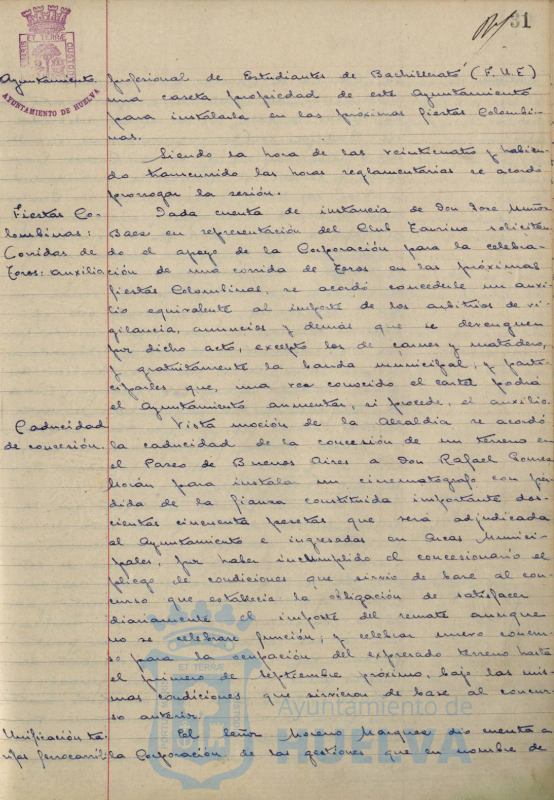 31
Ayuntamiento
AYUNTAMIENTO DE HUELVA
profesional de Estudiantes de Bachillerato (F.U.E)
una caseta propiedad de este Ayuntamiento
para instalarla en las próximas fiestas Colombi-
nas.
Siendo la hora de las veinticuatro y habien-
do transcurrido las horas reglamentarias se acordó
prorrogar la sesión.
Fiestas Co-
lombinas:
Corridas de
Toros: auxilio
Dada cuenta de instancia de Don Jose Muñoz
Baez en representación del Club Taurino solicitan-
do el apoyo de la Corporación para la celebra-
ción de una corrida de Toros en las próximas
fiestas Colombinas, se acordó concederle un auxi-
lio equivalente al importe de los arbitrios de vi-
gilancia, anuncios y demás que se devenguen
por dicho acto, excepto los de carnes y matadero,
y gratuitamente la banda municipal, y parti-
ciparles que, una vez conocido el cartel podrá
el Ayuntamiento aumentar, si procede, el auxilio.
Caducidad
de concesión.
Vista moción de la Alcaldia se acordó
la caducidad de la concesión de un terreno en
el Paseo de Buenos Aires a Don Rafael
Morán para instalar un cinematógrafo con pér-
dida de la fianza constituida importante dos-
cientas cincuenta pesetas que será adjudicada
al Ayuntamiento e ingresadas en Arcas Munici-
pales, por haber incumplido el concesionario el
pliego de condiciones que sirvió de base al con-
curso que establecia la obligación de satisfacer
diariamente el importe del remate aunque
no se celebrare función; y celebrar nuevo concur-
so para la ocupación del expresado terreno hasta
el primero de septiembre próximo, bajo las mis-
mas condiciones que sirvieron de base al concur-
so anterior.
Unificación ta-
rifas ferrocarril
El señor Moreno Marquez dio cuenta a
la Corporación de las gestiones que en nombre de
Ayuntamiento de
HUELVA